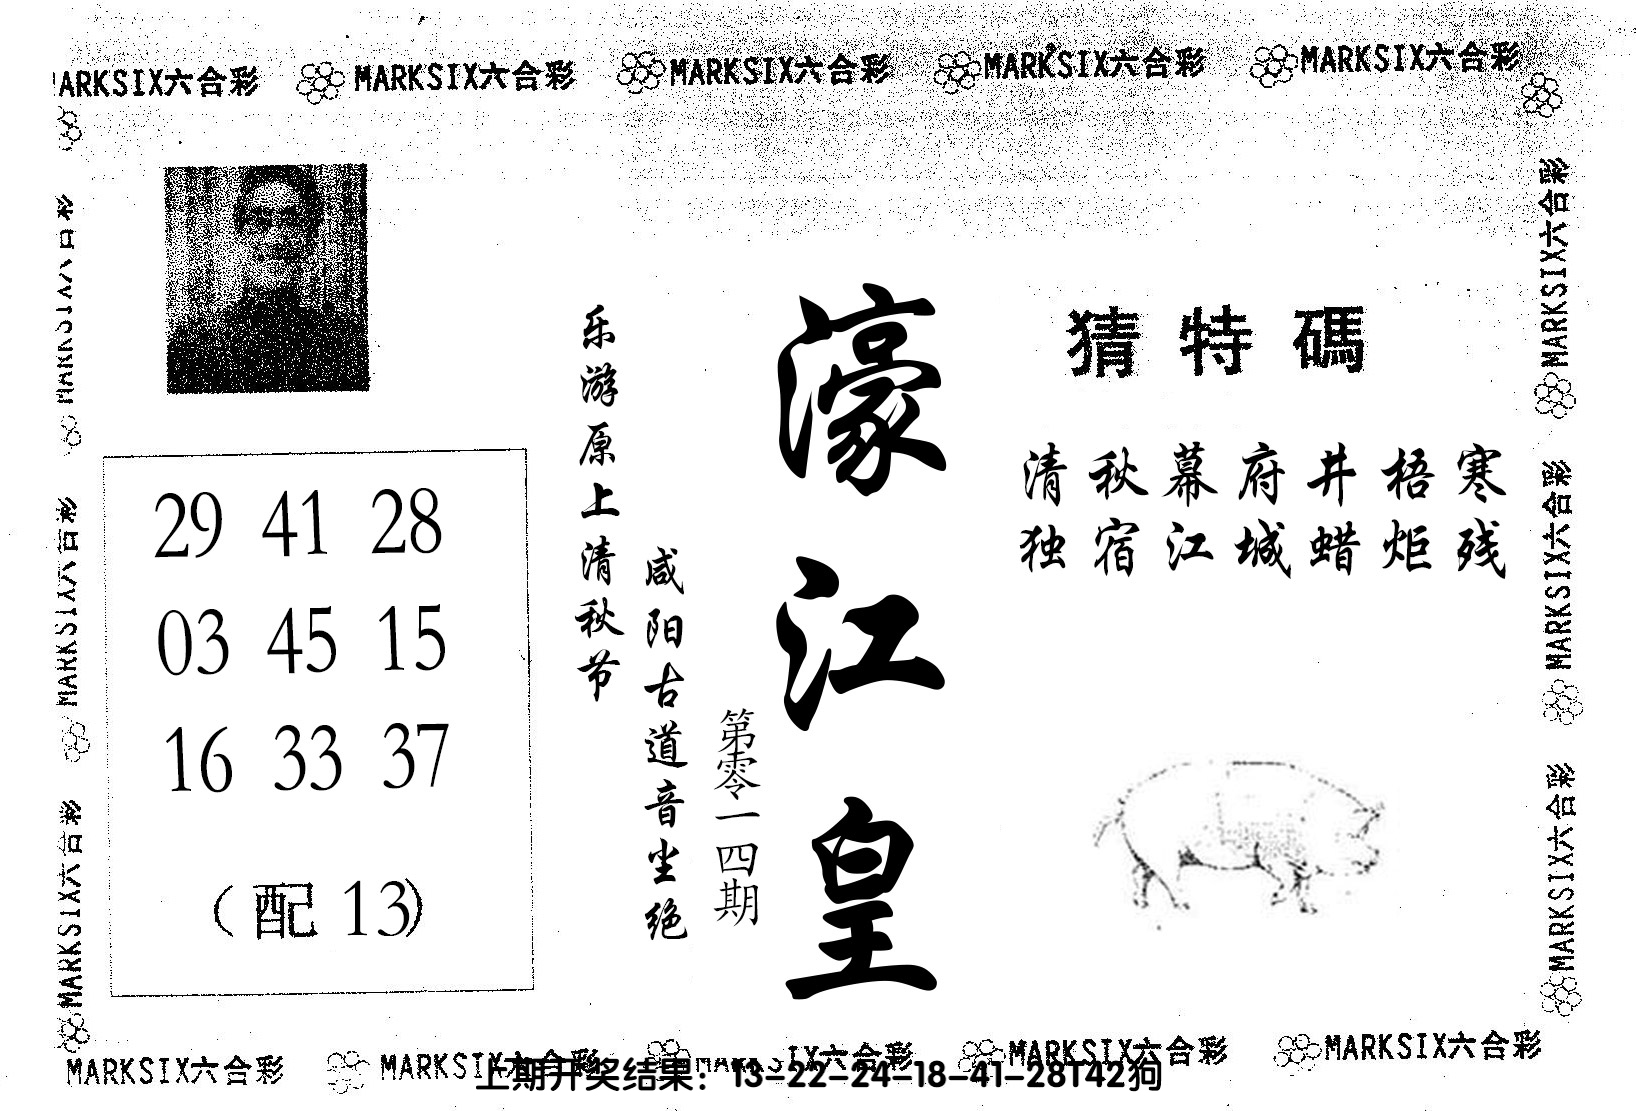 MARKSIX六合彩 MARKSIX六合彩 MARKSIX六合彩 MARKSIX六合彩
MARKSIX六合彩
MARKSIX六合彩
MARKSIX六合彩
MARKSIX六合彩
MARKSIX六合彩
猜特碼
清秋幕府井梧寒
独宿江城蜡炬残
濠江皇
第零一四期
乐游原上清秋节
咸阳古道音尘绝
29 41 28
03 45 15
16 33 37
(配13)
MARKSIX六合彩 MARKSIX六合彩 MARKSIX六合彩 MARKSIX六合彩
上期开奖结果：13-22-24-18-41-28T42狗